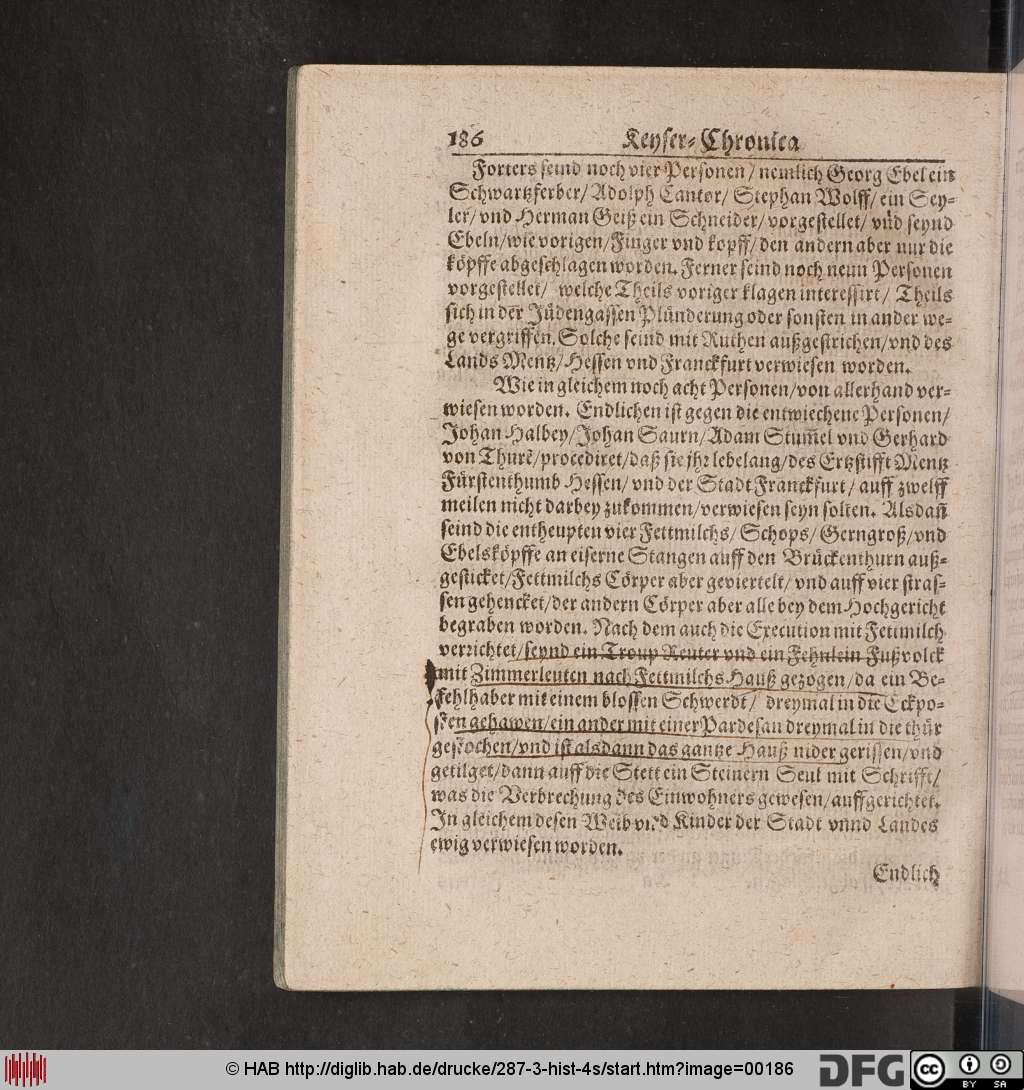 186 Keyser-Chronica
Forters seind noch vier Personen/ nemlich Georg Ebel ein
Schwartzferber/ Adolph Cantor/ Stephan Wolff/ ein Sey-
ler/ vnd Herman Geiß ein Schneider/ vorgestellet/ vñd seynd
Ebeln/ wie vorigen/ Finger vnd kopff/ den andern aber nur die
köpffe abgeschlagen worden. Ferner seind noch neun Personen
vorgestellet/ welche Theils voriger klagen interessirt/ Theils
sich in der Jüdengassen Plünderung oder sonsten in ander we-
ge vergriffen. Solche seind mit Ruthen außgestrichen/ vnd des
Lands Mentz/ Hessen vnd Franckfurt verwiesen worden.
Wie in gleichem noch acht Personen/ von allerhand ver-
wiesen worden. Endlichen ist gegen die entwiechene Personen/
Johan Halbey/ Johan Saurn/ Adam Stum̃el vnd Gerhard
von Thurẽ/ procediret/ daß sie jhr lebelang/ des Ertzstifft Mentz
Fürstenthumb Hessen/ vnd der Stadt Franckfurt/ auff zwelff
meilen nicht darbey zukommen/ verwiesen seyn solten. Alsdañ
seind die entheupten vier Fettmilchs/ Schops/ Gerngroß/ vnd
Ebelsköpffe an eiserne Stangen auff den Brückenthurn auß-
gesticket/ Fettmilchs Cörper aber geviertelt/ vnd auff vier stras-
sen gehencket/ der andern Cörper aber alle bey dem Hochgericht
begraben worden. Nach dem auch die Execution mit Fettmilch
verrichtet/ seynd ein Troup Reuter vnd ein Fehnlein Fußvolck
mit Zimmerleuten nach Fettmilchs Hauß gezogen/ da ein Be-
fehlhaber mit einem blossen Schwerdt/ dreymal in die Eckpo-
sten gehawen/ ein ander mit einer Pardesan dreymal in die thür
gestochen/ vnd ist alsdann das gantze Hauß nider gerissen/ vnd
getilget/ dann auff die Stett ein Steinern Seul mit Schrifft/
was die Verbrechung des Einwohners gewesen/ auffgerichtet.
In gleichem desen Weib vnd Kinder der Stadt vnnd Landes
ewig verwiesen worden.
Endlich
© HAB http://diglib.hab.de/drucke/287-3-hist-4s/start.htm?image=00186
DFG
cc
BY SA